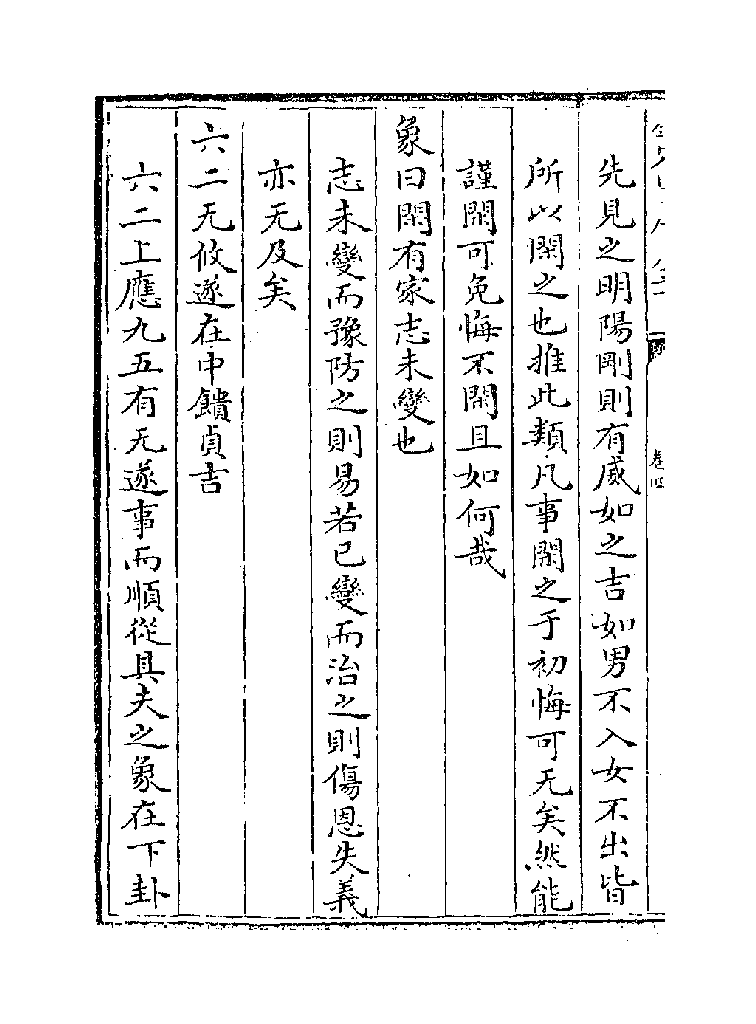 先見之明陽剛則有威如之吉如男不入女不出皆
所以閑之也推此類凡事閑之于初悔可无矣然能
謹閑可免悔不閑且如何哉
象曰閑有家志未變也
志未變而豫防之則易若已變而治之則傷恩失義
亦无及矣
六二无攸遂在中饋貞吉
六二上應九五有无遂事而順從具夫之象在下卦
卷四